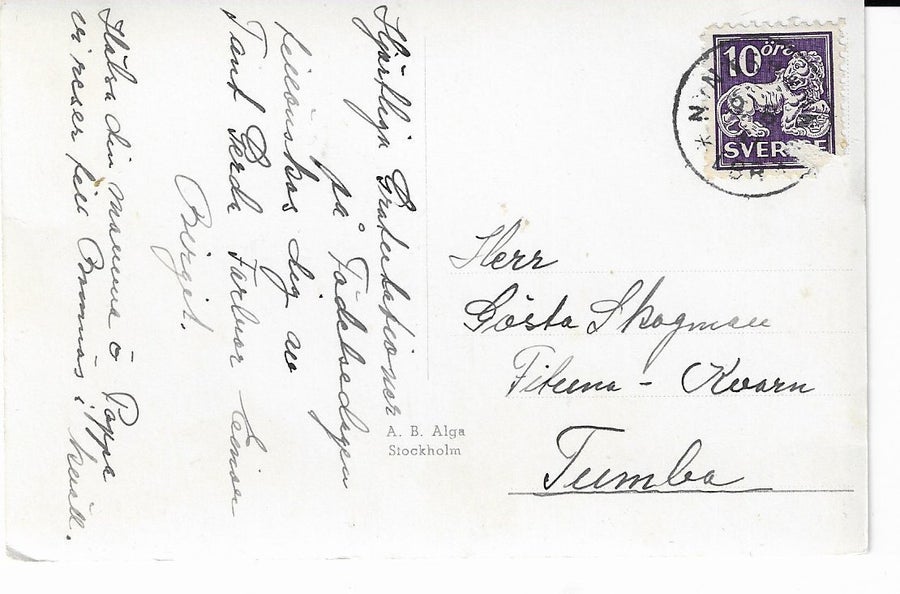 Hjärtliga Gratulationer
på Födelsedagen
tillönskas dig av
Tant Gerda Farbror Einar
Birgit.
Hälsa din mamma o Pappa
vi reser till i kväll.
10 öre
SVERIGE
Herr
Gösta Skogman
Kvarn
Tumba
A. B. Alga
Stockholm